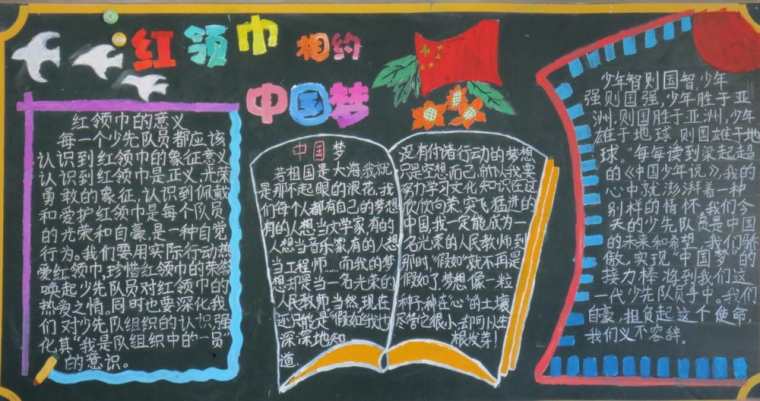 红领巾相约
中国梦
红领巾的意义
每一个少先队员都应该
认识到红领巾的象征意义
认识到红领巾是正义、光荣
勇敢的象征,认识到佩戴
和爱护红领巾是每个队员
的光荣和自豪,是一种自觉
行为。我们要用实际行动热
爱红领巾,珍惜红领巾的荣誉
唤起少先队员对红领巾的
热爱之情。同时也要深化我
们对少先队组织的认识,强
化其“我是队组织中的一员”
的意识。
中国梦
若祖国是大海,我就
是那不起眼的浪花,我
们每个人都有自己的梦想
有的人想当文学家,有的
人想当音乐家,有的人想
当工程师……而我的梦
想却是当一名光荣的
人民教师,当然,现在
还只能是“假如”我也
深深地知
道,
没有付诸行动的梦想
只是空想而已,所以我要
努力学习文化知识,在这
欣欣向荣,突飞猛进的
中国,我一定能成为一
名光荣的人民教师,到
那时,“假如”就不再是
假如了梦想像一粒
种子,种在“心”的土壤
尽管它很小,却可以生
根发芽!
少年智则国智,少年
强则国强,少年胜于亚
洲,则国胜于亚洲,少年
雄于地球,则国雄于地
球。”每每读到梁起超
的《中国少年说》,我的
心中就澎湃着一种
别样的情怀。我们今
天的少先队员是中国
的未来和希望,我们骄
傲,实现“中国梦”的
接力棒将到我们这
一代少先队员手中。我们
自豪,担负起这个使命,
我们义不容辞。